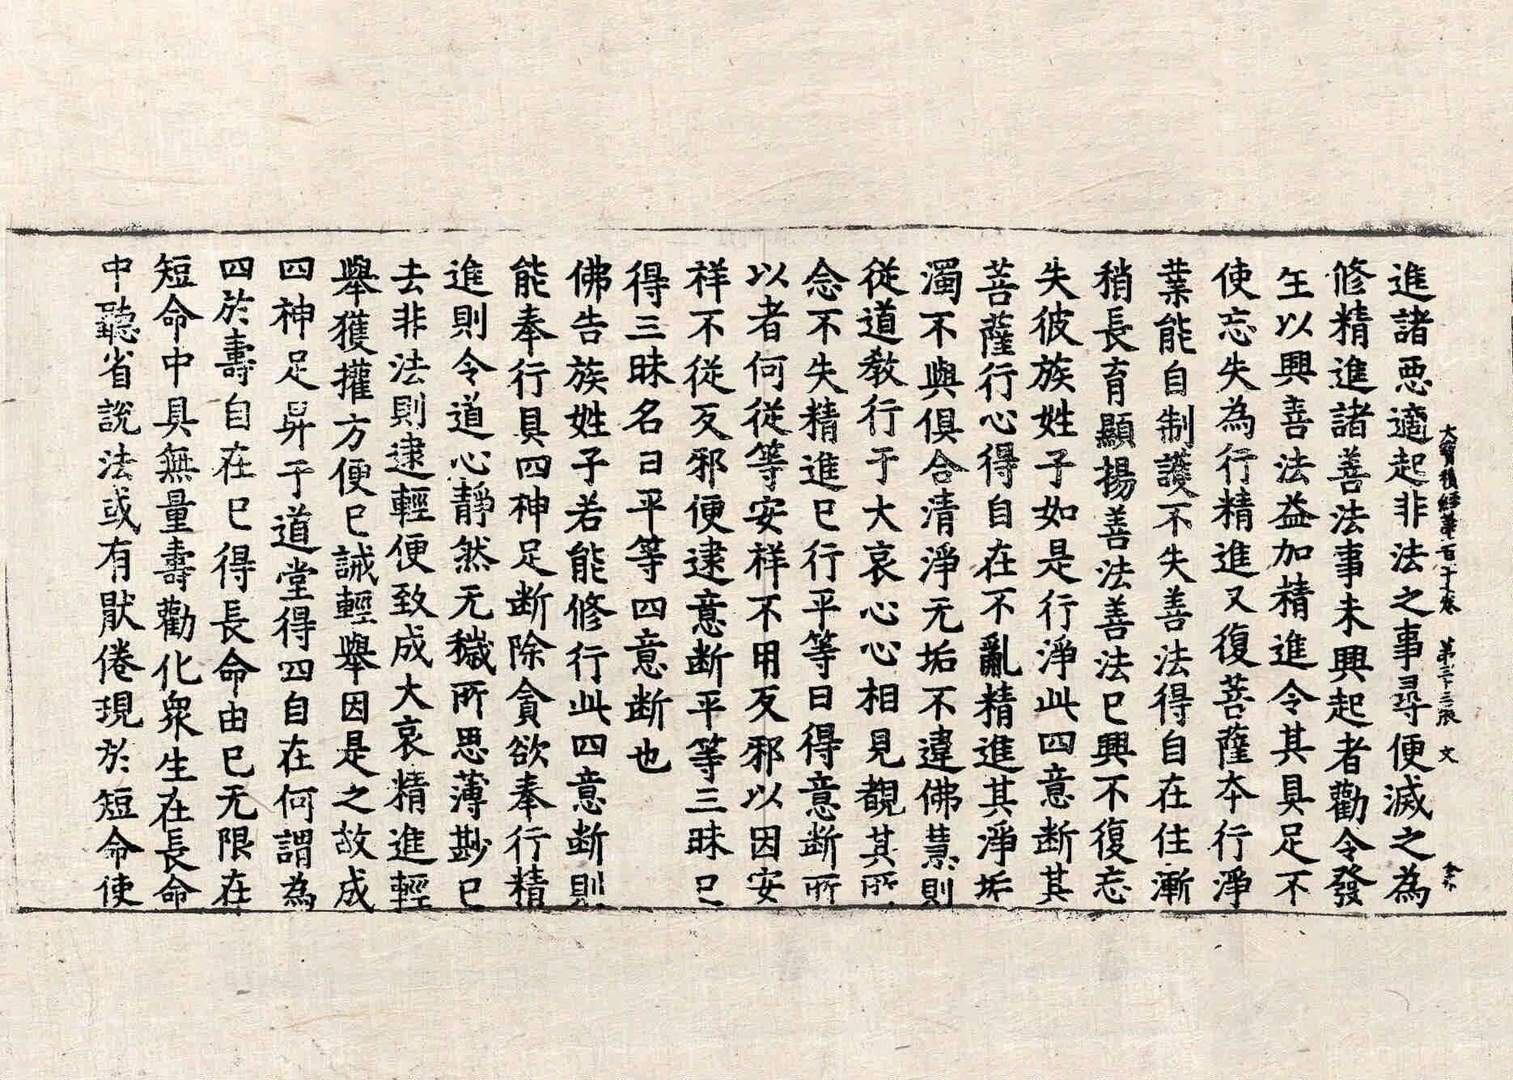 大寶積經第一百十七卷 第三十三張 文
進諸惡適起非法之事尋便滅之為
修精進諸善法事未興起者勸令發
生以興善法益加精進令其具足不
使忘失為行精進又復菩薩夲行淨
業能自制護不失善法得自在住漸
稍長育顯揚善法善法已興不復忘
失彼族姓子如是行淨此四意断其
菩薩行心得自在不亂精進其淨垢
濁不與俱合清淨无垢不違佛慧則
從道教行于大哀心心相見覩其所
念不失精進已行平等曰得意断所
以者何從等安祥不用反邪以因安
祥不從反邪便逮意断平等三昧已
得三昧名曰平等四意断也
佛告族姓子若能修行此四意断則
能奉行具四神足断除貪欲奉行精
進則令道心靜然无穢所思薄尠已
去非法則逮輕便致成大哀精進輕
舉獲權方便已誡輕舉因是之故成
四神足昇于道堂得四自在何謂為
四於壽自在已得長命由已无限在
短命中具無量壽勸化衆生在長命
中聽省說法或有猒倦現於短命使